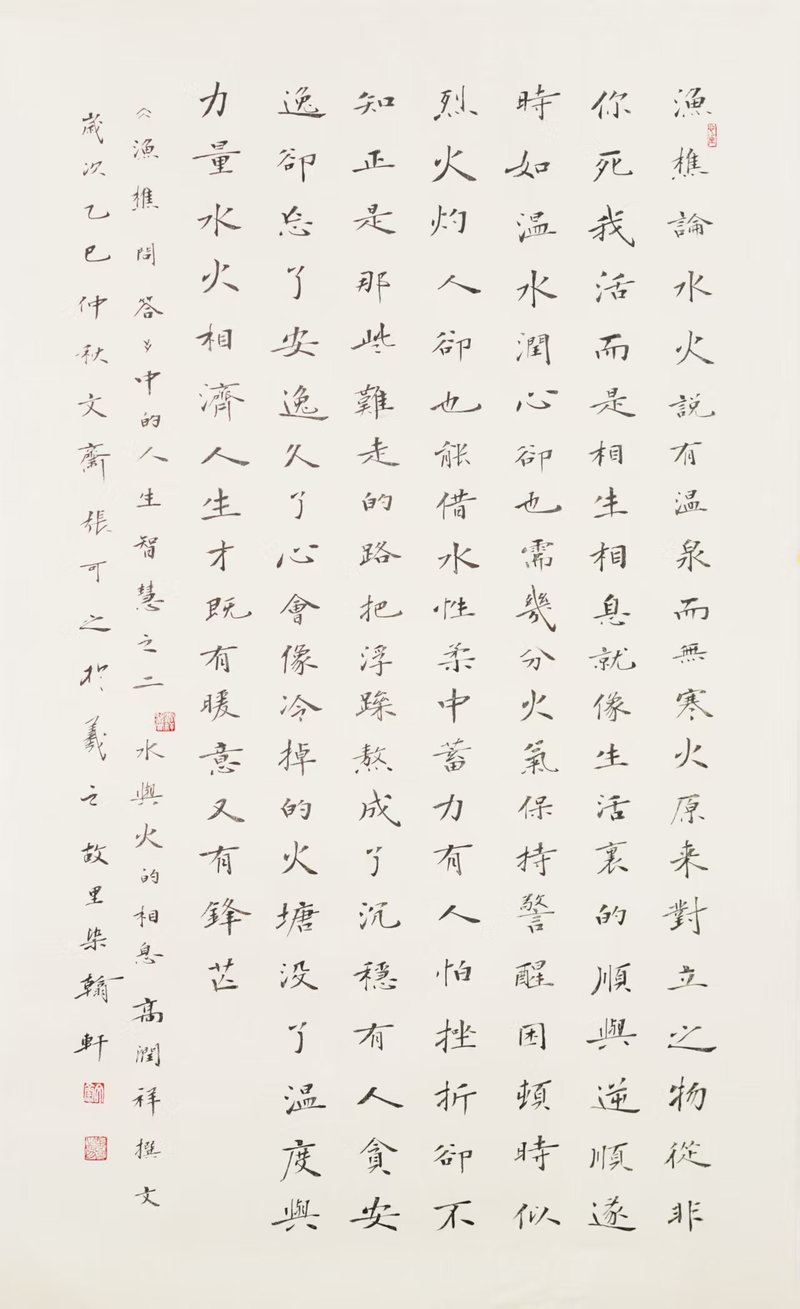 漁樵論水火說有温泉而無寒火原来對立之物從非
你死我活而是相生相息就像生活裏的順與逆順遂
時如温水潤心卻也需幾分火氣保持警醒困頓時似
烈火灼人卻也能借水性柔中蓄力有人怕挫折卻不
知正是那些難走的路把浮躁熬成了沉穩有人貪安
逸卻忘了安逸久了心會像冷掉的火塘没了温度與
力量水火相濟人生才既有暖意又有鋒芒
《漁樵問答》中的人生智慧之二 水與火的相息 高潤祥撰文
歲次乙巳仲秋文齋張可之於羲之故里染翰軒